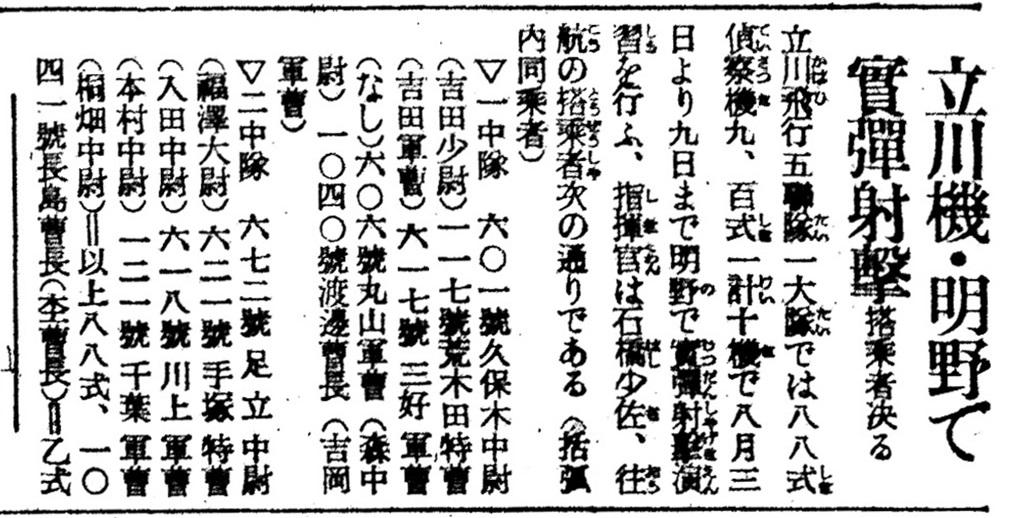 立川機・明野で
實彈射擊 搭乘者決る
立川飛行五聯隊一大隊では八八式
偵察機九、百式一計十機で八月三
日より九日まで明野で實彈射擊演
習を行ふ、指揮官は石橋少佐、往
航の搭乘者次の通りである(括弧
內同乘者)
▽一中隊 六〇一號久保木中尉
(吉田少尉)一一七號荒木田特曹
(吉田軍曹)六一七號三好軍曹
(なし)六〇六號丸山軍曹(森中
尉)一〇四〇號渡邊曹長(吉岡
軍曹)
▽二中隊 六七二號足立中尉
(福澤大尉)六二一號手塚特曹
(入田中尉)六一八號川上軍曹
(本村中尉)一二一號千葉軍曹
(桐畑中尉)=以上八八式、一〇
四一號長島曹長(本曹長)=乙式